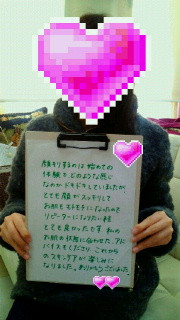 顔そりするのは始めての
体験で、どのような感じ
なのか、ドキドキしていましたが
とても顔がスッキリして
お肌もモチモチになったので
リピーターになりたい程
とても良かったです。私の
お肌の状態に合わせた、アド
バイスもしてくださり、これから
のスキンケアが楽しみに
なりました。ありがとうございました。